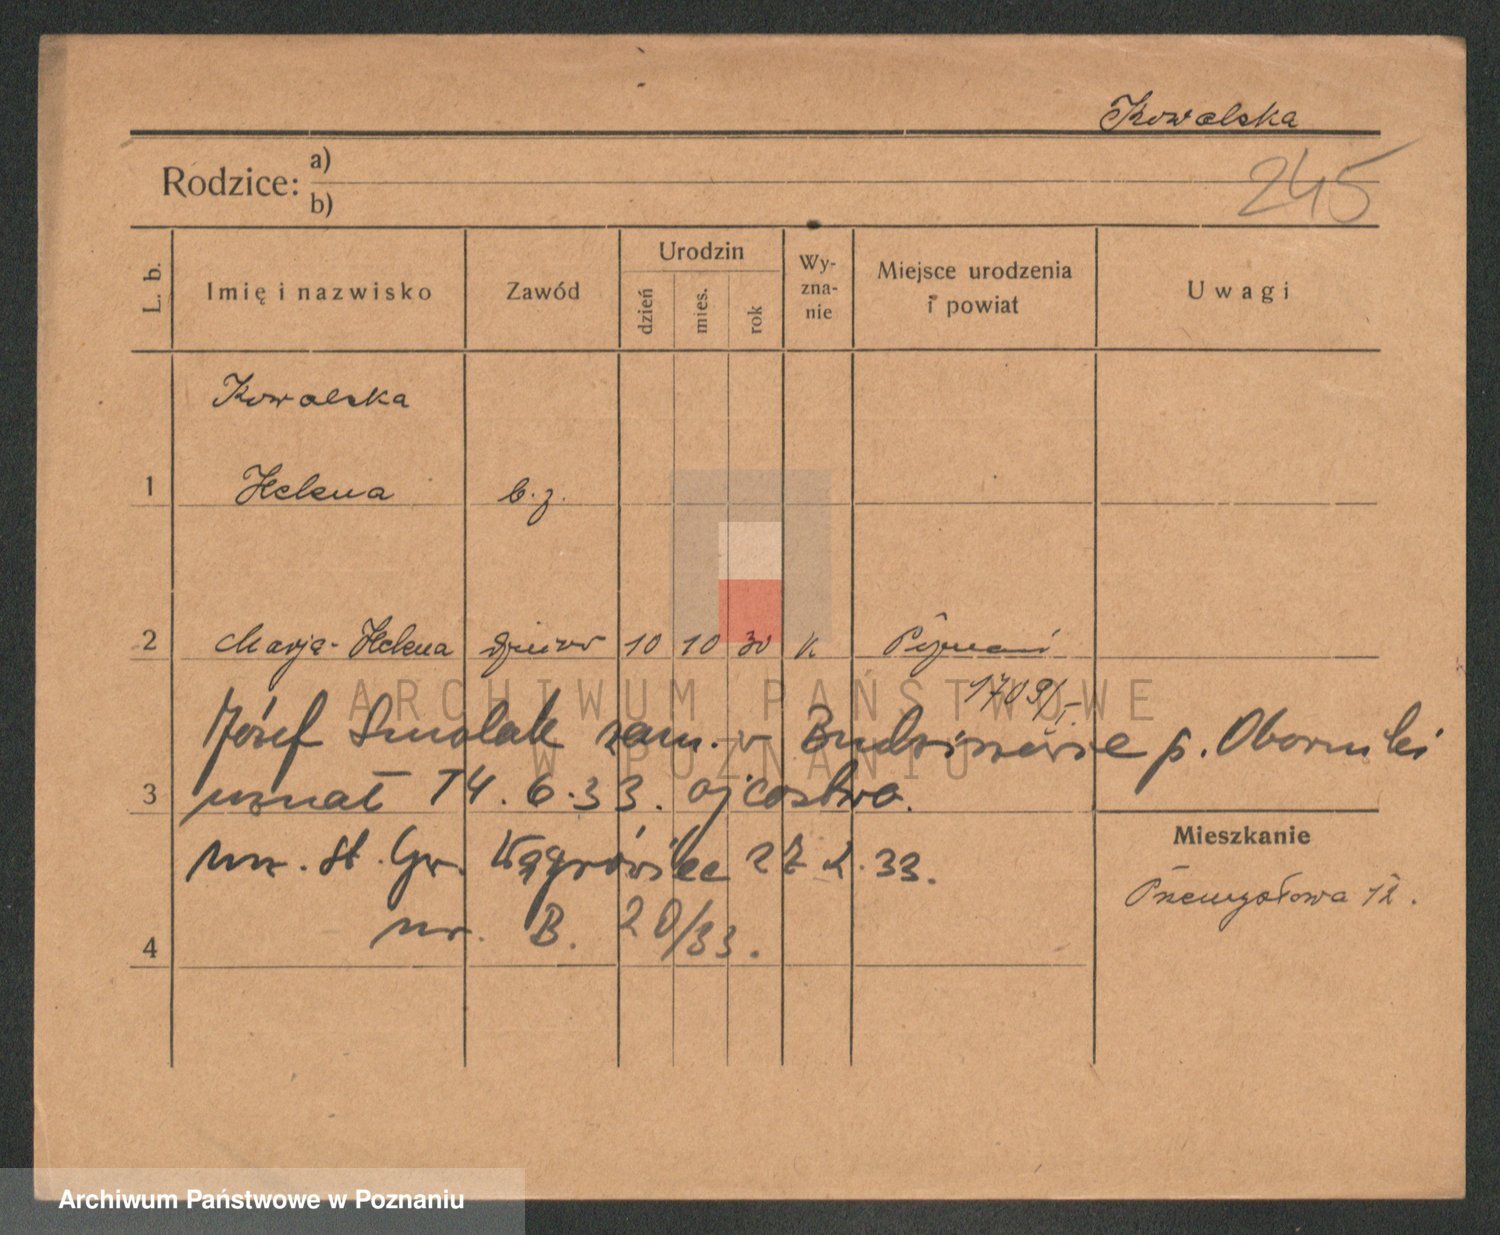 Kowalska
Rodzice: a)
b)
245
L. b.
Imię i nazwisko
Zawód
Urodzin
dzień
mies.
rok
Wy-
zna-
nie
Miejsce urodzenia
i powiat
Uwagi
Kowalska
1 Helena b. z.
2 Marja-Helena 10 10 30 k. Poznań
1709/
ARCHIWUM PAŃSTWOWE
W POZNANIU
Józef Smolak zam. w p. Obornicki
3 uznał 14. 6. 33. ojcostwo.
st. Gr. Wągrówiec 27 33.
nr. B. 20/33.
4
Mieszkanie
Przemysłowa 12.
Archiwum Państwowe w Poznaniu